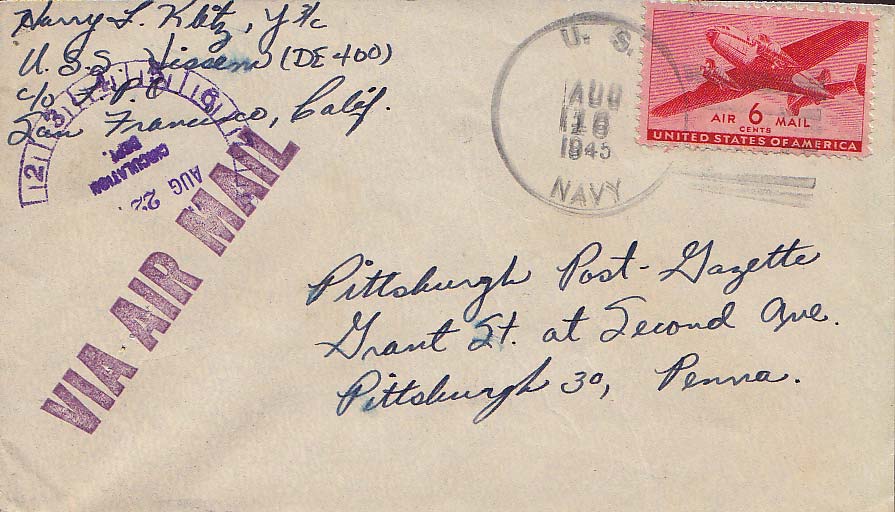 Harry L. Klitz, Y 3/c
U.S.S. Hissem (DE 400)
c/o F.P.O
San Francisco, Calif.
U. S.
AUG
16
1945
NAVY
AIR 6 MAIL
CENTS
UNITED STATES OF AMERICA
2 3 4 5 6
CIRCULATION
DEPT.
AUG 22
VIA AIR MAIL
Pittsburgh Post-Gazette
Grant St. at Second Ave.
Pittsburgh 30, Penna.